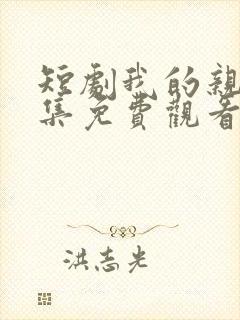 短劇我的親
集免費觀看
洪志光